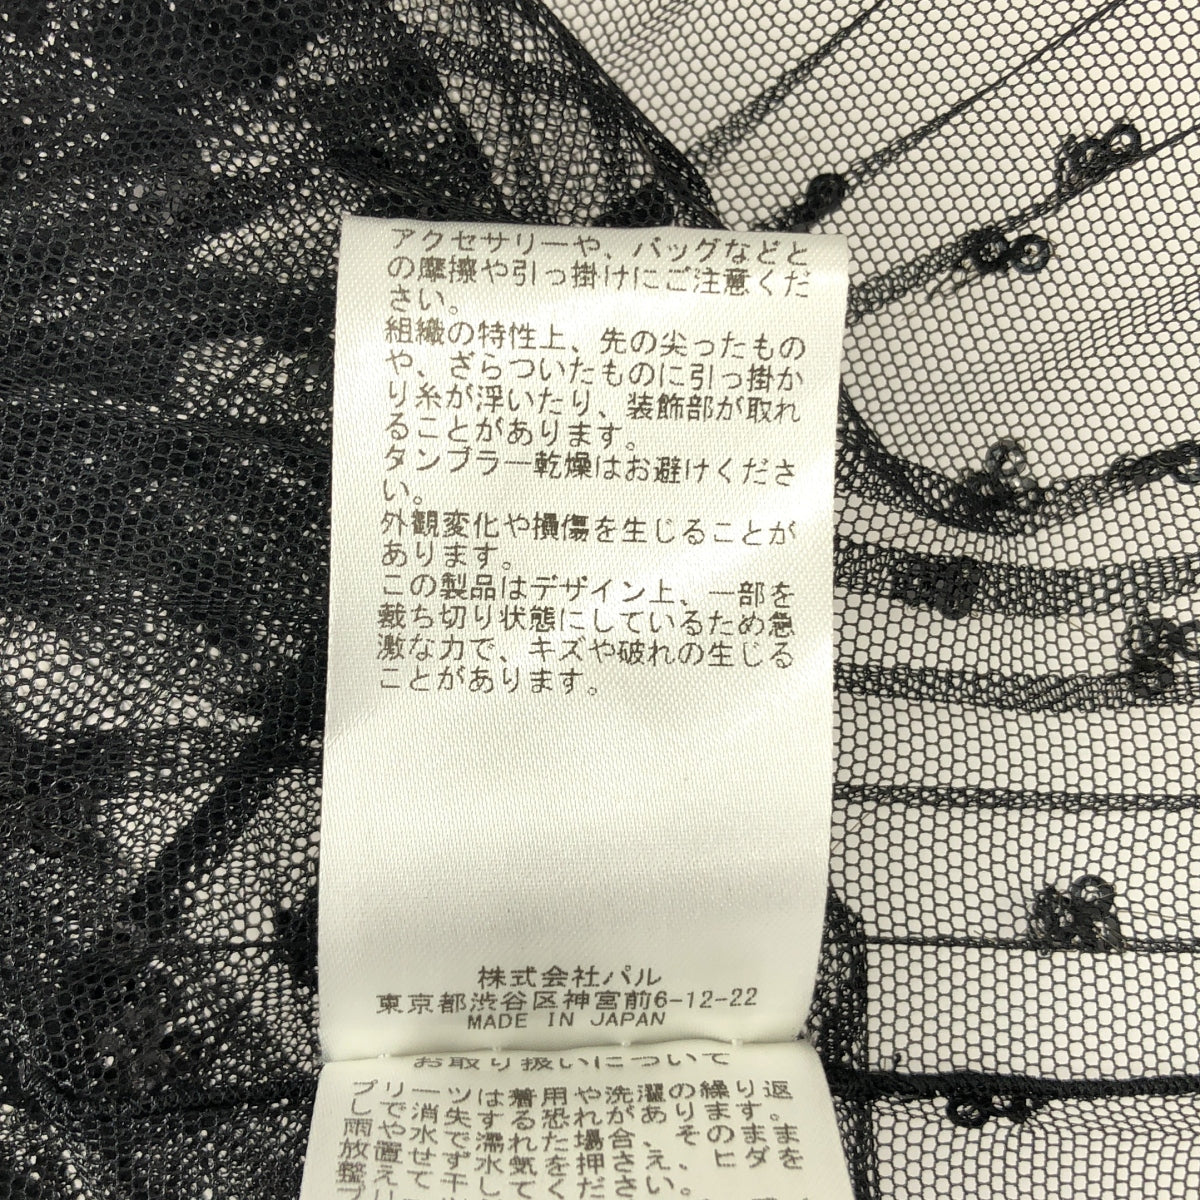 アクセサリーや、バッグなどと
の摩擦や引っ掛けにご注意くだ
さい。
組織の特性上、先の尖ったもの
や、ざらついたものに引っ掛か
り糸が浮いたり、装飾部が取れ
ることがあります。
タンブラー乾燥はお避けくださ
い。
外観変化や損傷を生じることが
あります。
この製品はデザイン上、一部を
裁ち切り状態にしているため急
激な力で、キズや破れの生じる
ことがあります。
株式会社パル
東京都渋谷区神宮前6-12-22
MADE IN JAPAN
お取り扱いについて
プリーツは着用や洗濯の繰り返